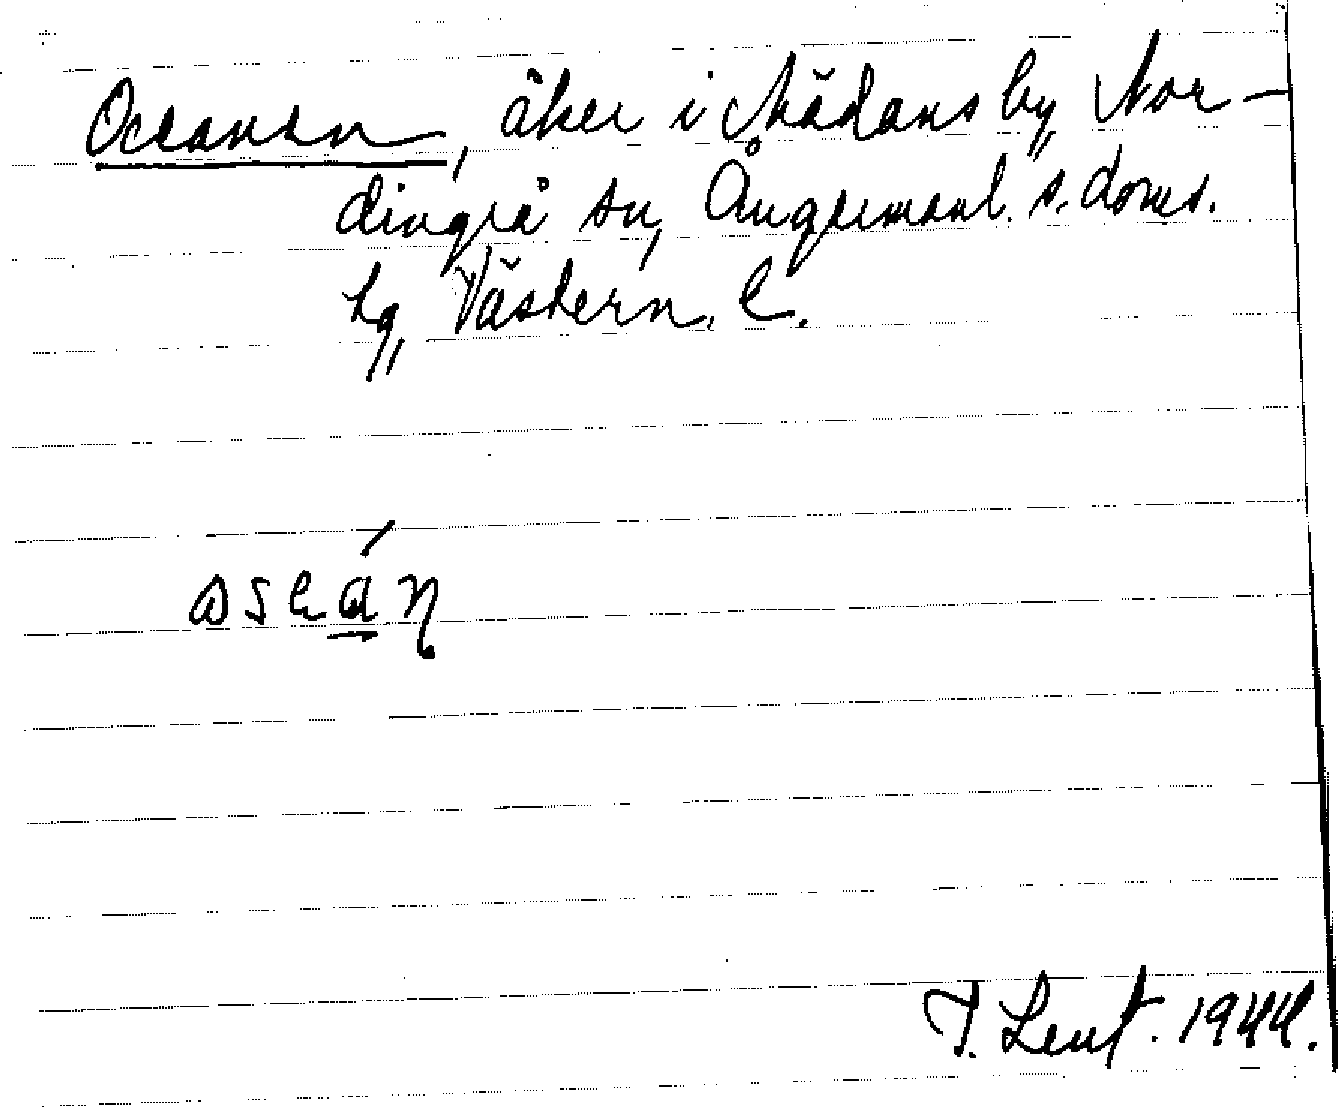 Oceanen, åker i Mädans by, Nor-
dingrå sn, Ångermanl. s. doms.
hg, Västern. l.
T. Lent. 1944.